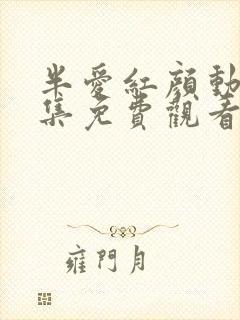 半愛紅顔動
集免費觀看
雍門月